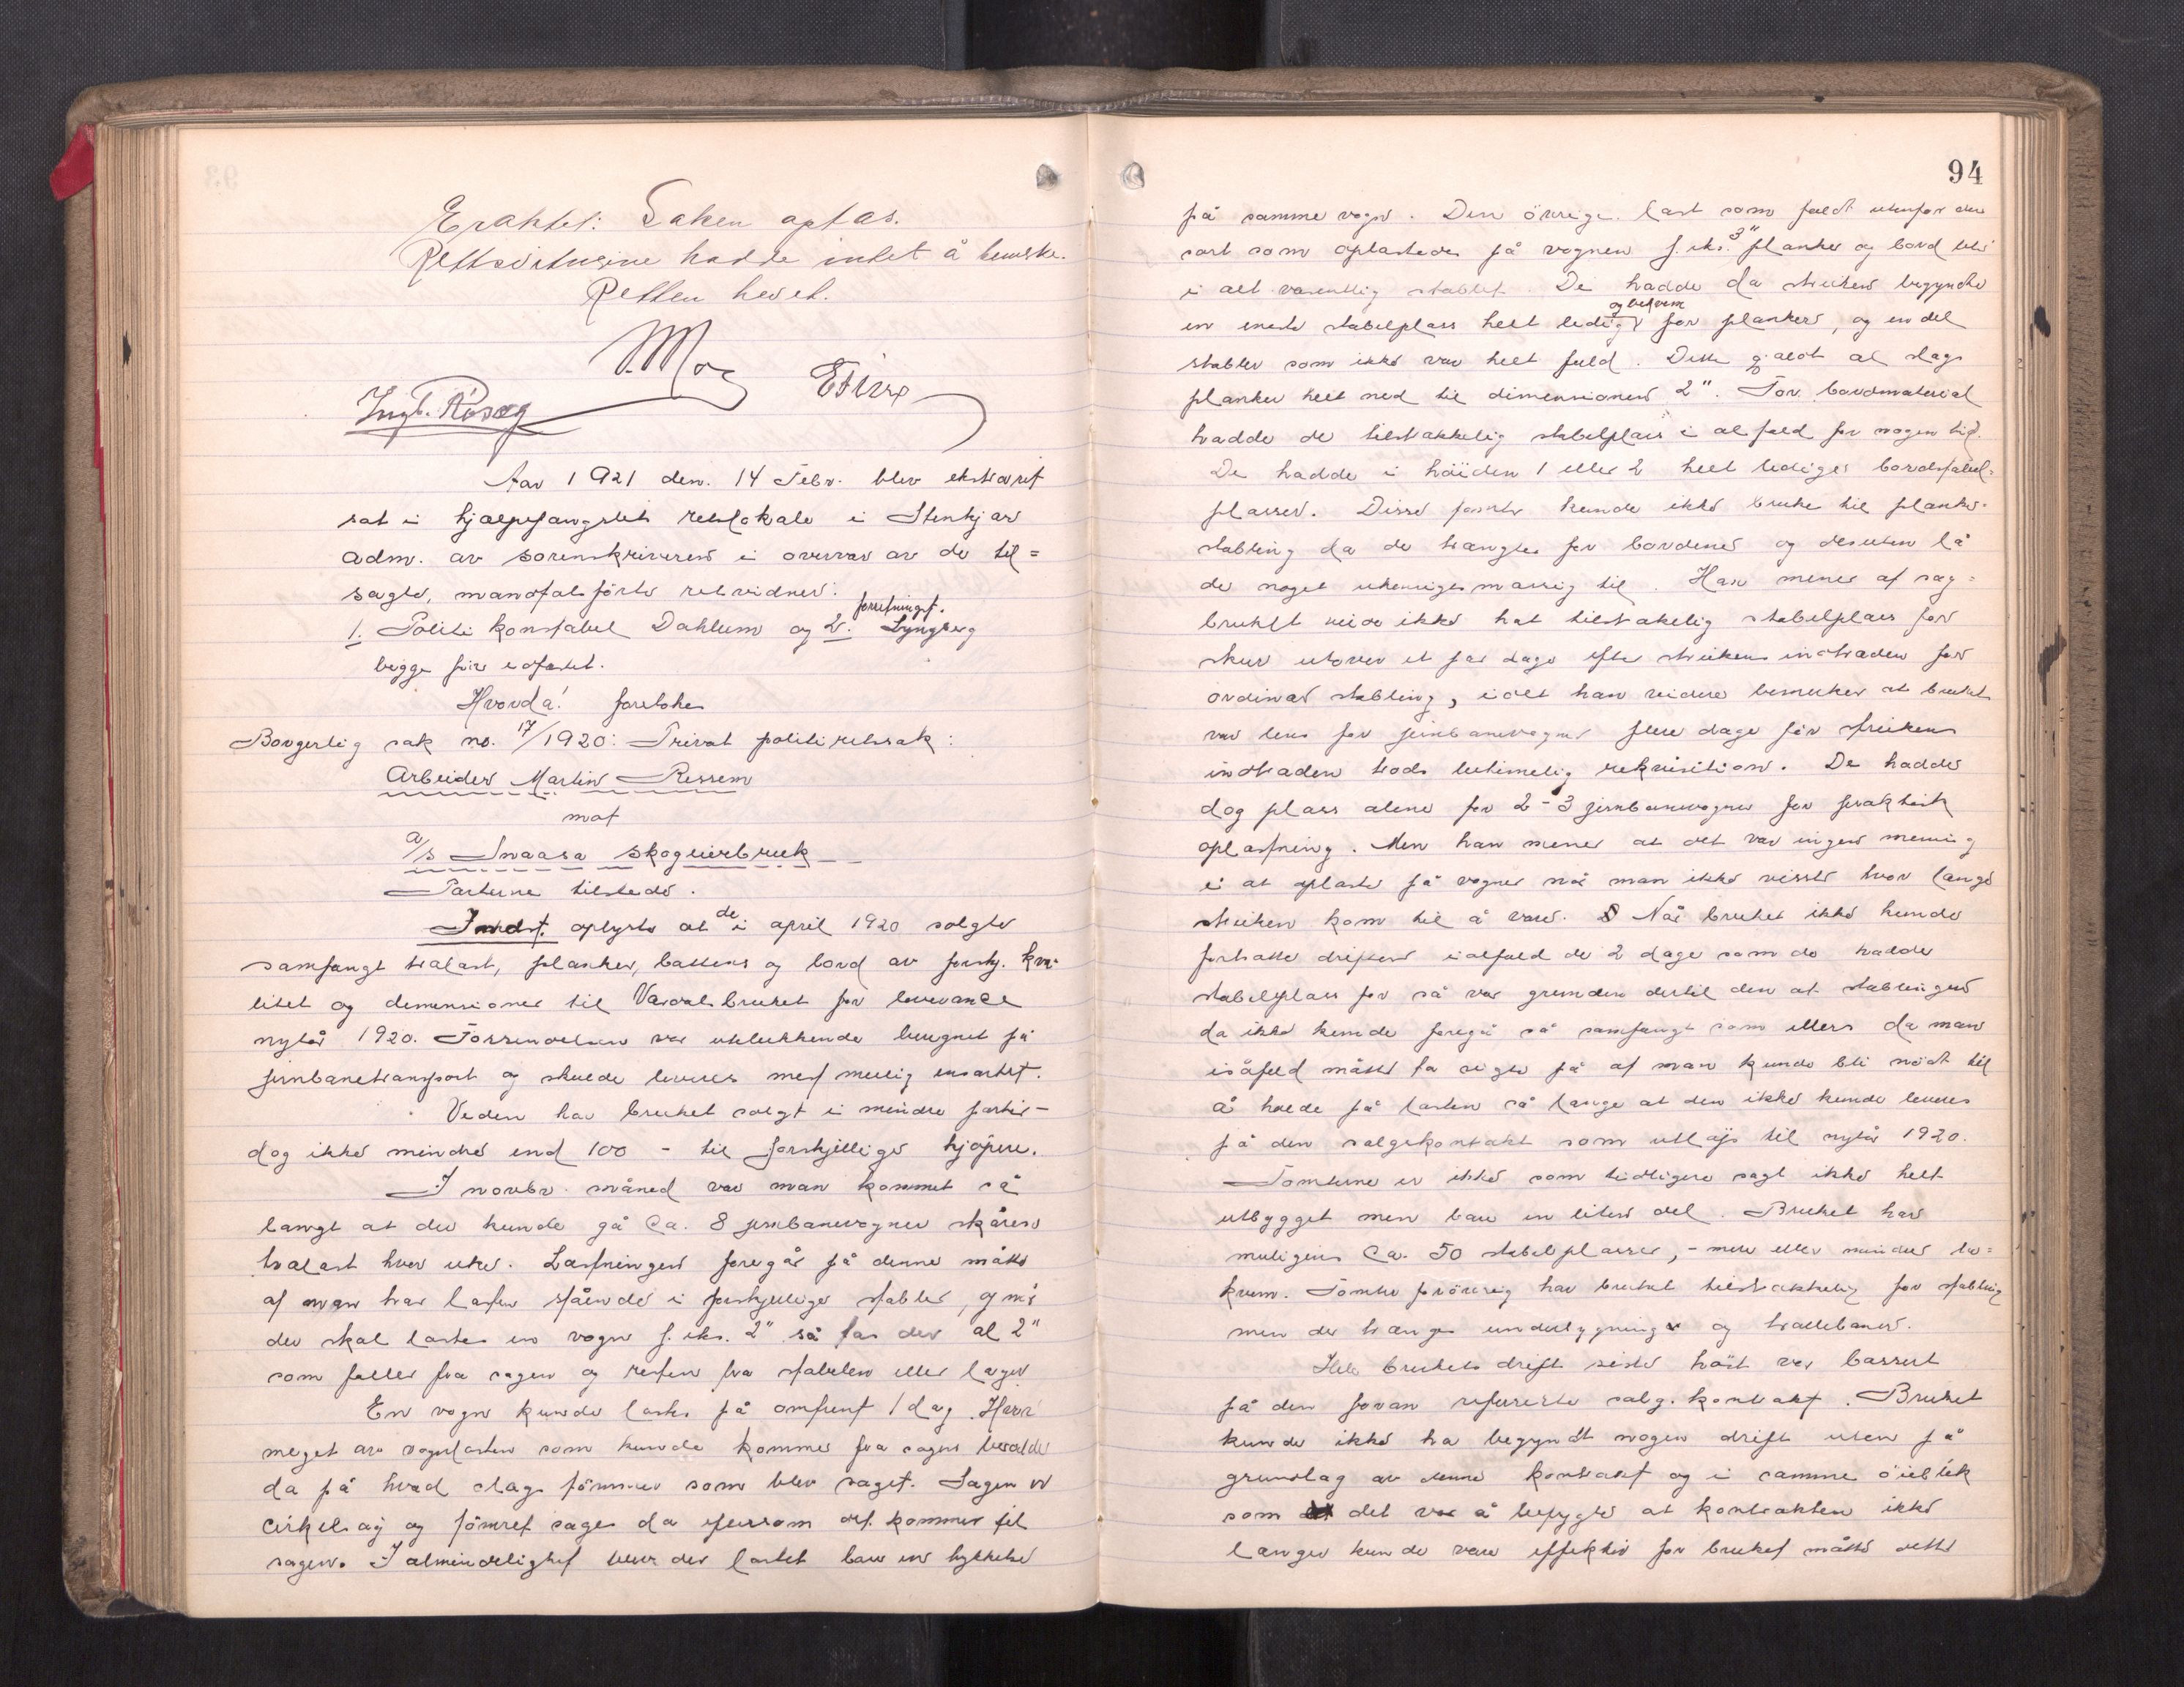 Eraktet: Saken optas.
Retsvitnerne hadde intet å bemerke.
Retten hevet.
Moe
Ingb. Rösæg
Aar 1921 den. 14 Febr. blev ekstraret
sat i hjælpefængslets retslokale i Stenkjær
adm. av sorenskriveren i overvær av de til=
sagte, mandtalsförte retsvidner:
1. Politi konstabel Dahlum og 2. forretningsf. Lyngberg
begge för edfæstet.
Hvorda! foretokes
Borgerlig sak no. 17/1920: Privat politiretssak:
Arbeider Martin Ressem
mot
A/S Snaasa Skogeierbruk
Parterne tilstede.
Indst. oplyste at de i april 1920 solgte
samfængt trælast, planker, battens og bord av forskj. kva-
litet og dimensioner til Værdalsbruket for leverance
nytår 1920. Forsendelsen var utelukkende beregnet på
jernbanetransport og skulde leveres mest mulig ensartet.
Veden har bruket solgt i mindre partier -
dog ikke mindre end 100 - til forskjellige kjöpere.
I novbr. måned var man kommet så
langt at der kunde gå ca. 8 jernbanevogner skåren
trælast hver uke. Lastningen foregår på denne måte
at man har lasten stående i forskjellige stabler, og når
der skal lastes en vogn f. eks. 2" så tas der al 2"
som falder fra sagen og resten fra stabelen eller lager
En vogn kunde lastes på omtrent 1 dag. Hvor
meget av vognlasten som kunde komme fra sagen beroldte
da på hvad slags tömmer som blev saget. Sagen er
cirkelsag og tömret sages da eftersom det kommer til
sagen. I almindelighet blev der lastet bare en tykkelse
94
på samme vogn. Den övrige last som faldt utenfor den
sort som oplastedes på vognen f. eks. 3" planker og bord blir
i alt væsentlig stablet. De hadde da streiken begyndte
en eneste stabelplass helt ledig og bekvem for planker, og en del
stabler som ikke var helt fuld. Dette gjaldt al slags
planker helt ned til dimensionen 2". For bordmaterial
hadde de tilstrækkelig stabelplass i al fald for nogen tid.
De hadde i höiden 1 eller 2 helt ledige bordstabel=
plasser. Disse tomter kunde ikke brukes til planke-
stabling da de trængtes for bordene og desuten lå
de noget uhensigtsmæssig til. Han mener at sag=
bruket vilde ikke hat tilstrækkelig stabelplass for
skur utover et par dage efter streikens indtræden for
ordinær stabling, idet han videre bemerker at bruket
var lens for jernbanevogner flere dage för streikens
indtræden trods betimelig rekvisition. De hadde
dog plass alene for 2-3 jernbanevogner for praktisk
oplastning. Men han mener at det var ingen mening
i at oplaste på vogner når man ikke visste hvor længe
streiken kom til å vare. Når bruket ikke kunde
fortsætte driften ialfald de 2 dage som de hadde
stabelplass for så var grunden dertil den at stablingen
da ikke kunde foregå så samfængt som ellers da man
isåfald måtte ta sigte på at man kunde bli nödt til
å holde på lasten så længe at den ikke kunde leveres
på den salgskontrakt som utlöp til nytår 1920.
Tomterne er ikke som tidligere sagt ikke helt
utbygget men bare en liten del. Bruket har
muligens ca. 50 stabelplasser, - mere eller mindre be=
kvem. Tomter forövrig har bruket tilstrækkelig for stabling
men der trænges underbygninger og trallebaner.
Hele brukets drift siste höst var bassert
på den foran refererte salg.kontrakt. Bruket
kunde ikke ha begyndt nogen drift uten på
grundlag av denne kontrakt og i samme öieblik
som det var å befrygte at kontrakten ikke
længer kunde være effektiv for bruket måtte dette